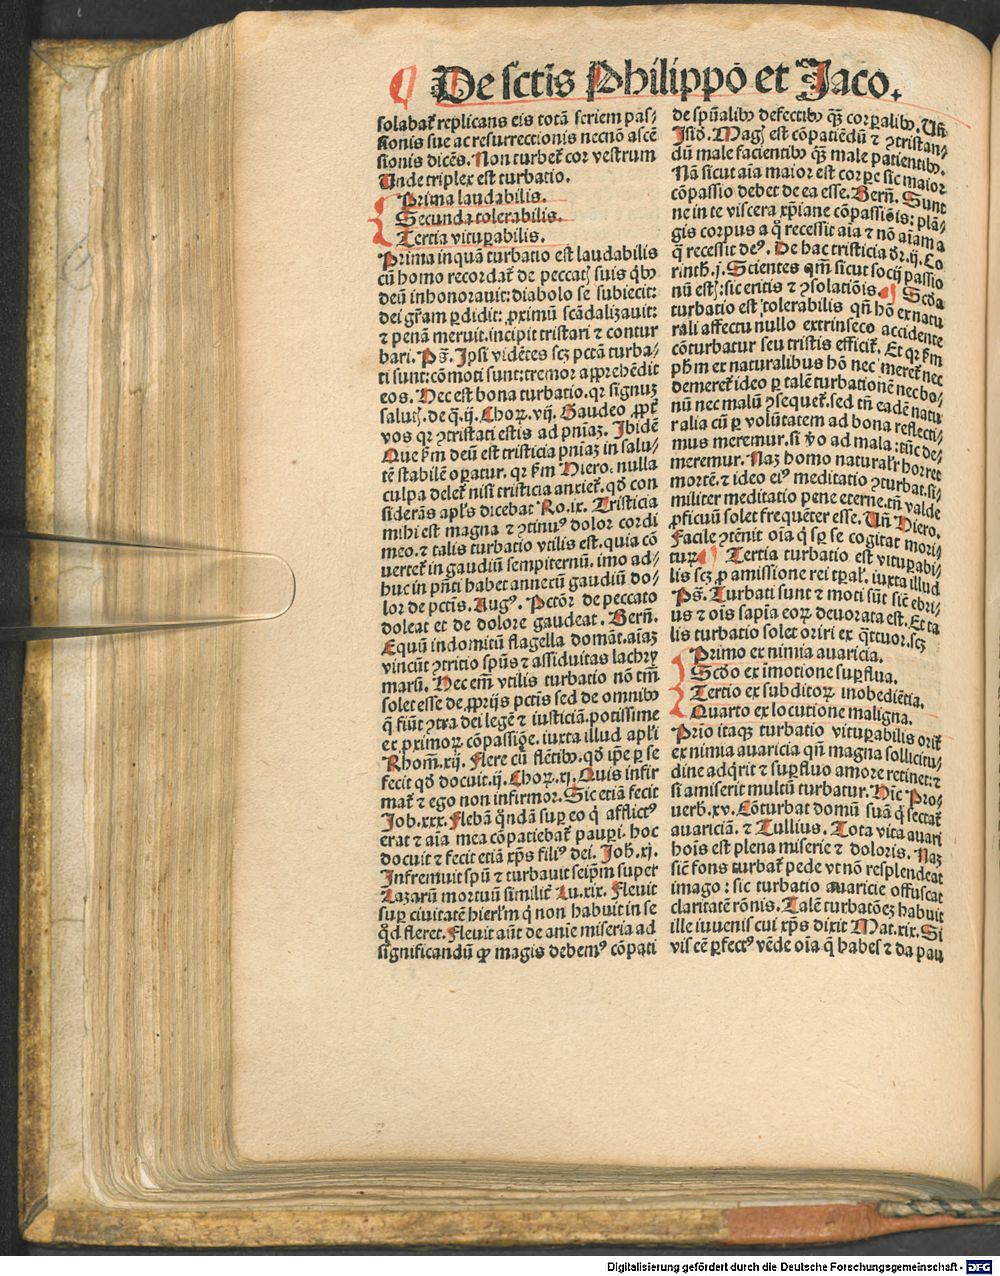 De sctīs Philippo et Jaco.
solabat᷑ replicans eis totā seriem pas-
sionis sue ac resurrectionis necnō ascē
sionis dicēs. Non turbet᷑ cor vestrum
Unde triplex est turbatio.
Prima laudabilis.
Secunda tolerabilis.
Tertia vituꝑabilis.
Prima inquā turbatio est laudabilis
cū homo recordat᷑ de peccatꝭ suis qͥbꝰ
deū inhonorauit: diabolo se subiecit:
dei gr̄am ꝑdidit: ꝓximū scādalizauit:
⁊ penā meruit. incipit tristari ⁊ contur
bari. Ps̄. Ipsi vidētes scꝫ pctā turba-
ti sunt: cōmoti sunt: tremor apprehēdit
eos. Hec est bona turbatio. qꝛ signuꝫ
salutꝭ. de q̄. ij. Choꝝ. vij. Gaudeo ꝓpt᷑
vos qꝛ ꝯtristati estis ad pn̄iaꝫ. Ibidē
Que ẜm deū est tristicia pn̄iaꝫ in salu-
tē stabilē oꝑatur. qꝛ ẜm Hiero. nulla
culpa delet᷑ nisi tristicia anxiet᷑. qd̄ con
siderās apl̄s dicebat Ro. ix. Tristicia
mihi est magna ⁊ ꝯtinuꝰ dolor cordi
meo. ⁊ talis turbatio vtilis est. quia cō
uertet᷑ in gaudiū sempiternū. imo ad-
huc in pn̄ti habet annexū gaudiū do-
lor de pctīs. Augꝰ. Pctōr de peccato
doleat et de dolore gaudeat. Bern̄.
Equū indomitū flagella domāt. aīaꝫ
vincūt ꝯtritio spūs ⁊ assiduitas lachry
marū. Hec em̄ vtilis turbatio nō tm̄
solet esse de ꝓprijs pctīs sed de omnibꝰ
q̄ fiūt ꝯtra dei legē ⁊ iusticiā. potissime
ex ꝓximoꝝ cōpassiōe. iuxta illud apl̄i
Rhom̄. xij. Flere cū flētibꝰ. qd̄ ip̄e ꝑ se
fecit qd̄ docuit. ij. Choꝝ. xj. Quis infir
mat᷑ ⁊ ego non infirmor. Sic etiā fecit
Job. xxx. Flebā qͦndā suꝑ eo qͥ afflictꝰ
erat ⁊ aīa mea cōpatiebat᷑ pauꝑi. hoc
docuit ⁊ fecit etiā xp̄s filiꝰ dei. Joh̄. xj.
Infremuit spū ⁊ turbauit seip̄m super
Lazarū mortuū similit᷑ Lu. xix. Fleuit
suꝑ ciuitatē hierl̄m qͥ non habuit in se
qͦd fleret. Fleuit aūt de anīe miseria ad
significandū ꝙ magis debemꝰ cōpati
de spūalibꝰ defectibꝰ qͣꝫ corꝑalibꝰ. Un̄
Isid̄. Magꝭ est cōpatiēdū ⁊ ꝯtristan-
dū male facientibꝰ qͣꝫ male patientibꝰ.
Nā sicut aīa maior est corꝑe sic maior
cōpassio debet de ea esse. Bern̄. Sunt
ne in te viscera xp̄iane cōpassiōis: plā-
gis corpus a qͦ recessit aīa ⁊ nō aīam a
q̄ recessit deꝰ. De hac tristicia dr̄. ij. Co
rinth̄. j. Scientes qm̄ sicut socij passio
nū estꝭ: sic eritis ⁊ ꝯsolatiōis. Scd̄a
turbatio est tolerabilis qn̄ hō ex natu
rali affectu nullo extrinseco accidente
cōturbatur seu tristis efficit᷑. Et qꝛ ẜm
ph̄m ex naturalibus hō nec meret᷑ nec
demeret᷑ ideo ꝑ talē turbationē nec bo-
nū nec malū ꝯsequet᷑. sed tn̄ eadē natu
ralia cū ꝑ volūtatem ad bona reflecti-
mus meremur. si ꝟo ad mala: tūc de-
meremur. Naꝫ homo naturalr̄ horret
mortē. ⁊ ideo eiꝰ meditatio ꝯturbat. si-
militer meditatio pene eterne. tn̄ valde
ꝓficuū solet frequēter esse. Un̄ Hiero.
Facile ꝯtēnit oīa qͥ sꝑ se cogitat mori-
tuꝝ. Tertia turbatio est vituꝑabi-
lis scꝫ ꝓ amissione rei tꝑal᷑. iuxta illud
Ps̄. Turbati sunt ⁊ moti sūt sic̄ ebri-
us ⁊ oīs sapīa eoꝝ deuorata est. Et ta
lis turbatio solet oriri ex qͣttuor. scꝫ
Primo ex nimia auaricia.
Scd̄o ex īmotione suꝑflua.
Tertio ex subditoꝝ inobediētia.
Quarto ex locutione maligna.
Prīo itaqꝫ turbatio vituꝑabilis orit᷑
ex nimia auaricia qn̄ magna sollicitu-
dine adqͥrit ⁊ suꝑfluo amore retinet: ⁊
si amiserit multū turbatur. Hīc Pro-
uerb̄. xv. Cōturbat domū suā qͥ sectat᷑
auariciā. ⁊ Tullius. Tota vita auari
hoīs est plena miserie ⁊ doloris. Naꝫ
sic̄ fons turbat᷑ pede vt nō resplendeat
imago: sic turbatio auaricie offuscat
claritatē rōnis. Talē turbatōeꝫ habuit
ille iuuenis cui xp̄s dixit Mat. xix. Si
vis eē ꝑfectꝰ vēde oīa q̄ habes ⁊ da pau
Digitalisierung gefördert durch die Deutsche Forschungsgemeinschaft - DFG